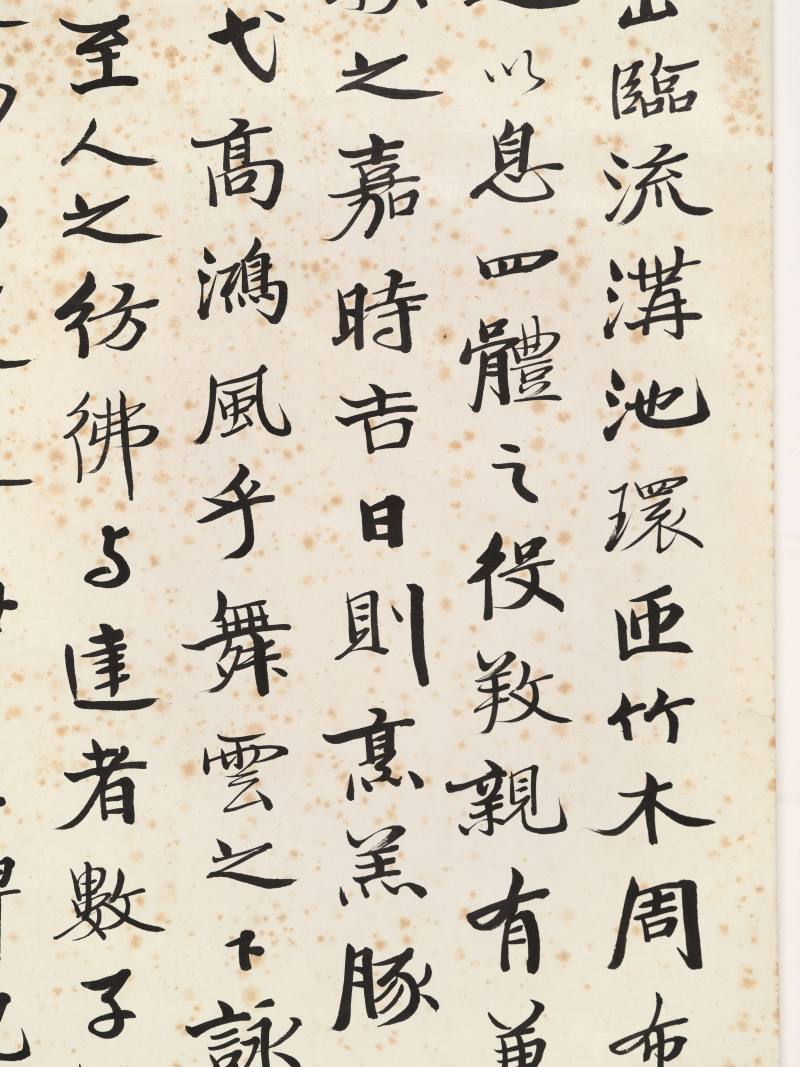 山臨流溝池環匝竹木周布
以息四體之役養親有兼
之嘉時吉日則烹羔豚
弋高鴻風乎舞雲之下詠
至人之彷彿与達者數子